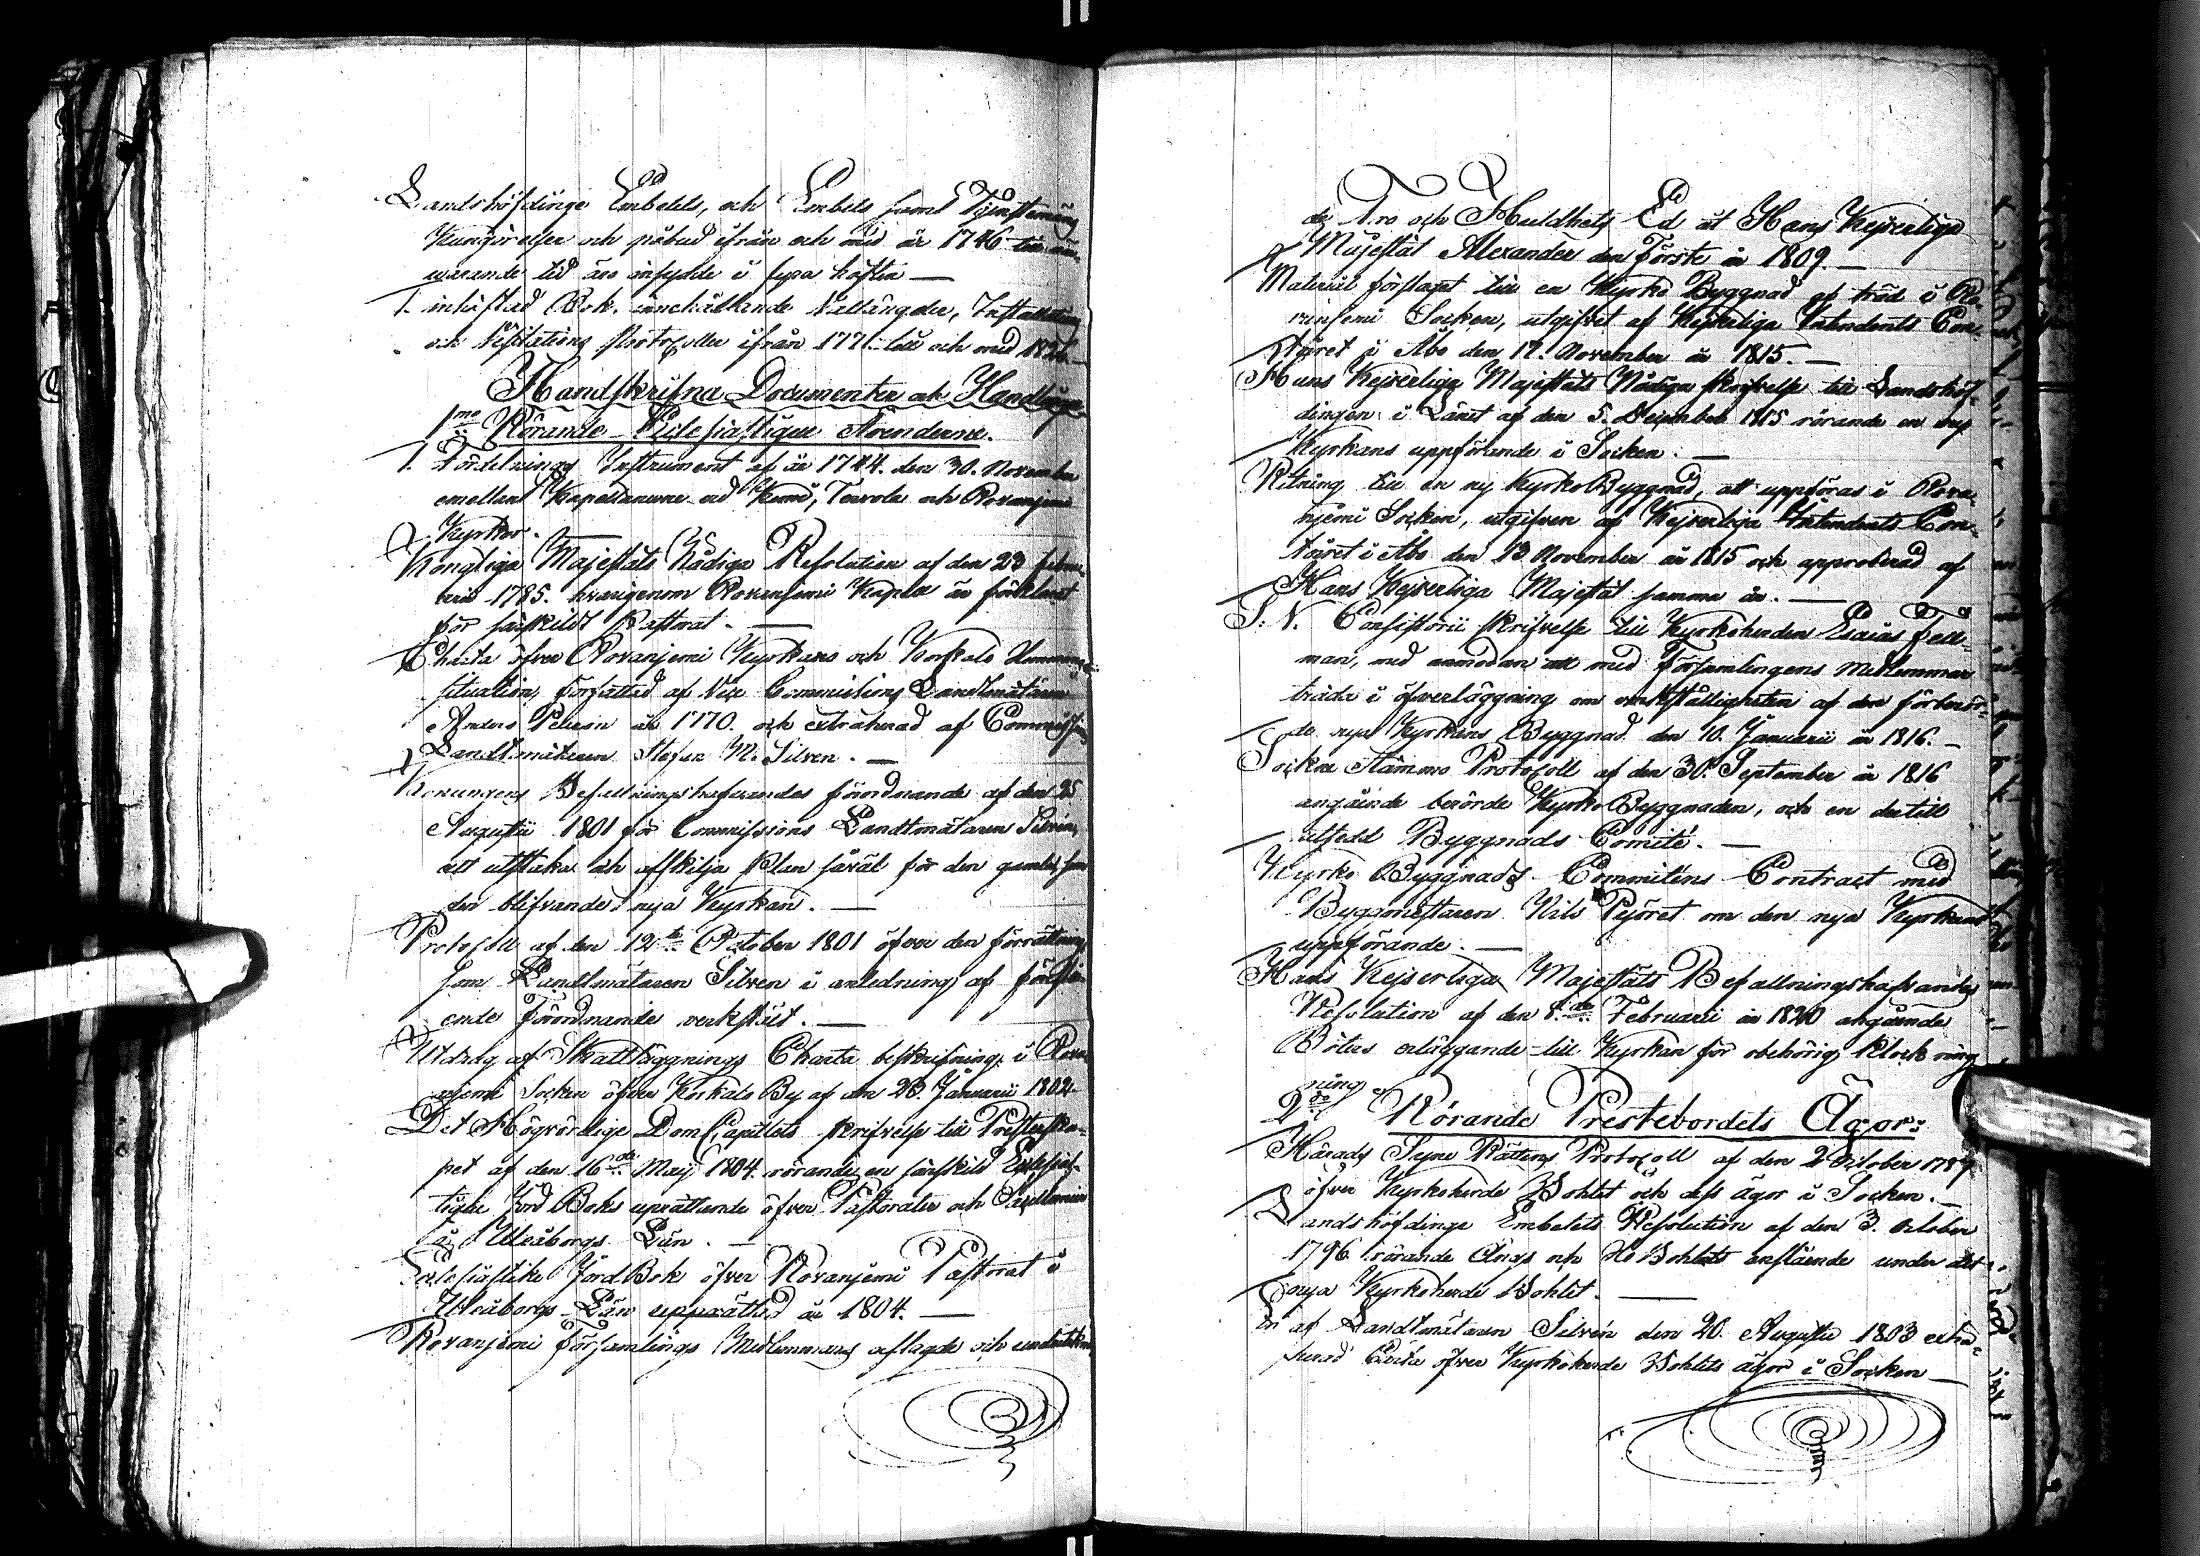 Landshöfdinge Embetets, och Embets samt Tjenstemäns
Kungörelser och påbud ifrån och med år 1746 till nu-
warande tid äro insydde i fyra häften —
1. inhäftad Bok, innehållande Vallängder, Installations
och Visitations Protocoller ifrån 1771 till och med 1824
Handskrifna Documenter och Handlingar
1mo Rörande Eclesiastique Ärenderne.
1. Fördelnings Instrument af år 1744 den 30. November
emellan Kapellanerne vid Kemi, Tervola och Rovanjemi
Kyrkor. —
Kongliga Majestäts Nådiga Resolution af den 23 febru-
arii 1785. hvarigenom Rovanjemi Kapell är förklarat
för särskildt Pastorat. —
Charta öfver Rovanjemi Kyrkans och Korkalo
situation, författad af Vice Commissions Landtmätaren
Anders år 1770. och extraherad af Commissions
Landtmätaren Stefan M. Silven. —
Konungens Befallningshafvandes förordnande af den 25
Augusti 1801 för Commissions Landtmätaren Silvén,
att utstaka och afskilja Plan såväl för den gamla, som
den blifvande nya Kyrkan. —
Protocoll af den 12te October 1801 öfver den förrättning
som Landtmätaren Silven i anledning af förestå-
ende Förordnande verkstält. —
Utdrag af Skattläggnings Charta beskrifning i Rova-
njemi Socken öfver Korkalo By af den 26. Januarii 1802
Det Högvördige DomCapitlets skrifvelse till Presterska-
pet af den 16de Maij 1804. rörande en särskild Eclesias-
tique Jord Boks uprättande öfver Pastoratia och
i Uleåborgs Län. —
Eclesiastike Jord Bok öfver Rovanjemi Pastorat i
Uleåborgs Län upprättad år 1804. —
Rovanjemi Församlings Medlemmars aflagde och undertekna-
de Tro och Huldhets Ed åt Hans Kejserliga
Majestät Alexander den Förste år 1809. —
Material förslaget till en Kyrko Byggnad af träd i Ro-
vanjemi Socken, utgifvet af Kejserliga Intendents Con-
toiret i Åbo den 12. November år 1815. —
Hans Kejserliga Majestäts Nådiga skrifvelse till Landshöf-
dingen i Länet af den 5. December 1815 rörande en ny
Kyrkans uppförande i Socken. —
Ritning till en ny Kyrko Byggnad, att uppföras i Rova-
njemi Socken, utgifven af Kejserliga Intendents Con-
toiret i Åbo den 13 November år 1815 och approberad af
Hans Kejserliga Majestät samma år. —
S. V. Consistorii skrifvelse till Kyrkoherden Esaias Fell-
man, med anmodan att med Församlingens Medlemmar
träda i öfverläggning om verkställigheten af den förberör-
de nya Kyrkans Byggnad den 10. Januarii år 1816. —
Sockne Stämmo Protocoll af den 30. September år 1816
angående berörde Kyrko Byggnaden, och en dertill
utsedd Byggnads Comité. —
Kyrko Byggnads Committéns Contract med
Byggmästaren Nils Pejöret om den nya Kyrkans
uppförande. —
Hans Kejserliga Majestäts Befallningshafvandes
Resolution af den 8de Februarii år 1820 angående
Böters erläggande till Kyrkan för obehörig klockring
ning.
2do Rörande Prestebordets Ägor:
Härads Syne Rättens Protocoll af den 2 October 1787
öfver Kyrkoherde Bohlet och dess ägor i Socken. —
Landshöfdinge Embetets Resolution af den 3. October
1796 rörande Ängs och Hö Bohlets anslående under det
nya Kyrkoherde Bohlet. —
En af Landtmätaren Silvén den 20. Augusti 1803 extra-
herad Carta öfver Kyrkoherde Bohlets ägor i Socken —